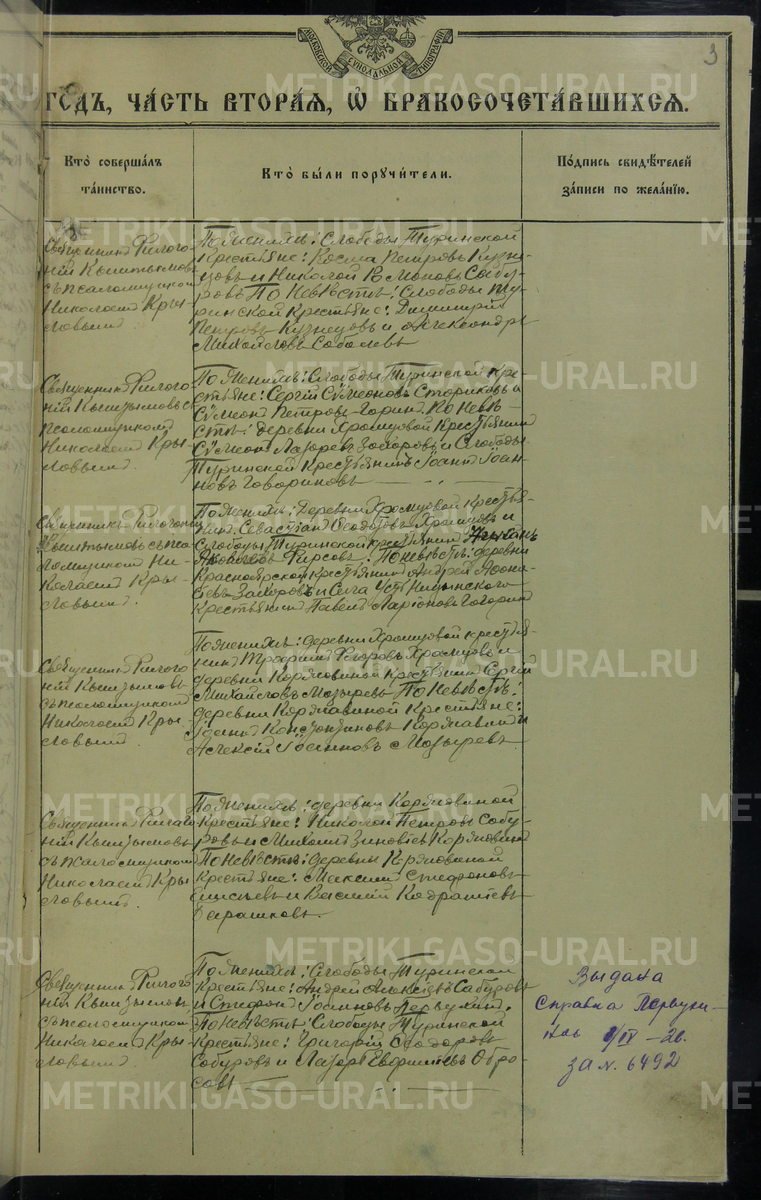 МОСКОВСКОЙ СѴНОДАЛЬНОЙ ТИПОГРАФІИ
3
METRIKI.GASO-URAL.RU
ГОДЪ, ЧАСТЬ ВТОРАЯ, Ѡ БРАКОСОЧЕТАВШИХСЯ.
Кто совершалъ таинство.
Кто были поручители.
Подпись свидѣтелей записи по желанію.
Священникъ Филого-
ній Кыштымовъ
съ псаломщикомъ
Николаемъ Кры-
ловымъ
По женихѣ: Слободы Туринской
крестьяне: Косма Петровъ Кузне-
цовъ и Николай Собу-
ровъ По невѣстѣ: Слободы Ту-
ринской крестьяне: Димитрій
Петровъ Кузнецовъ и Александръ
Михайловъ Соболевъ
Священникъ Филого-
ній Кыштымовъ съ
псаломщикомъ
Николаемъ Кры-
ловымъ
По женихѣ: Слободы Туринской кре-
стьяне: Сергій Сѵмеоновъ Стариковъ и
Сѵмеонъ Петровъ Горинъ. По невѣ-
стѣ: деревни Храмцовой крестьянинъ
Сѵмеонъ Лазаревъ Захаровъ и Слободы
Туринской крестьянинъ Іоаннъ Іоан-
новъ Говориновъ
Священникъ Филогоній
Кыштымовъ съ пса-
ломщикомъ Ни-
колаемъ Кры-
ловымъ.
По женихѣ: Деревни Храмцовой крестья-
нинъ Севастіанъ Ѳеодотовъ Храмцовъ и
Слободы Туринской крестьянинъ
Яковлевъ Фирсовъ. По невѣстѣ: деревни
Красноярской крестьянинъ Андрей Аѳона-
сьевъ Захаровъ и Села Усть Ницынскаго
крестьянинъ Павелъ Ларіоновъ
Священникъ Филого-
ній Кыштымовъ
съ псаломщикомъ
Николаемъ Кры-
ловымъ
По женихѣ: деревни Храмцовой крестья-
нинъ Егоровъ Храмцовъ и
деревни Коржавиной крестьянинъ Сергій
Михайловъ Мозыревъ По невѣстѣ:
деревни Коржавиной крестьяне:
Іоаннъ Константиновъ Коржавинъ и
Алексій Іоанновъ Мозыревъ
Священникъ Филого-
ній Кыштымовъ
съ псаломщикомъ
Николаемъ Кры-
ловымъ.
По женихѣ: деревни Коржавиной
крестьяне: Николай Петровъ Собу-
ровъ и Михаилъ Зиновіевъ Коржавинъ
По невѣстѣ: деревни Коржавиной
крестьяне: Максимъ Стефановъ
и Василій Кодратіевъ
Барашковъ.
Священникъ Филого-
ній Кыштымовъ
съ псаломщикомъ
Николаемъ Кры-
ловымъ
По женихѣ: Слободы Туринской
крестьяне: Андрей Алексѣевъ Сабуровъ
и Стефанъ Іоанновъ Первухинъ.
По невѣстѣ: Слободы Туринской
крестьяне: Григорій Ѳеодоровъ
Собуровъ и Лазарь Евграфіевъ Обро-
совъ
Выдана
справка Первухи-
/IV – 26.
за N. 6492